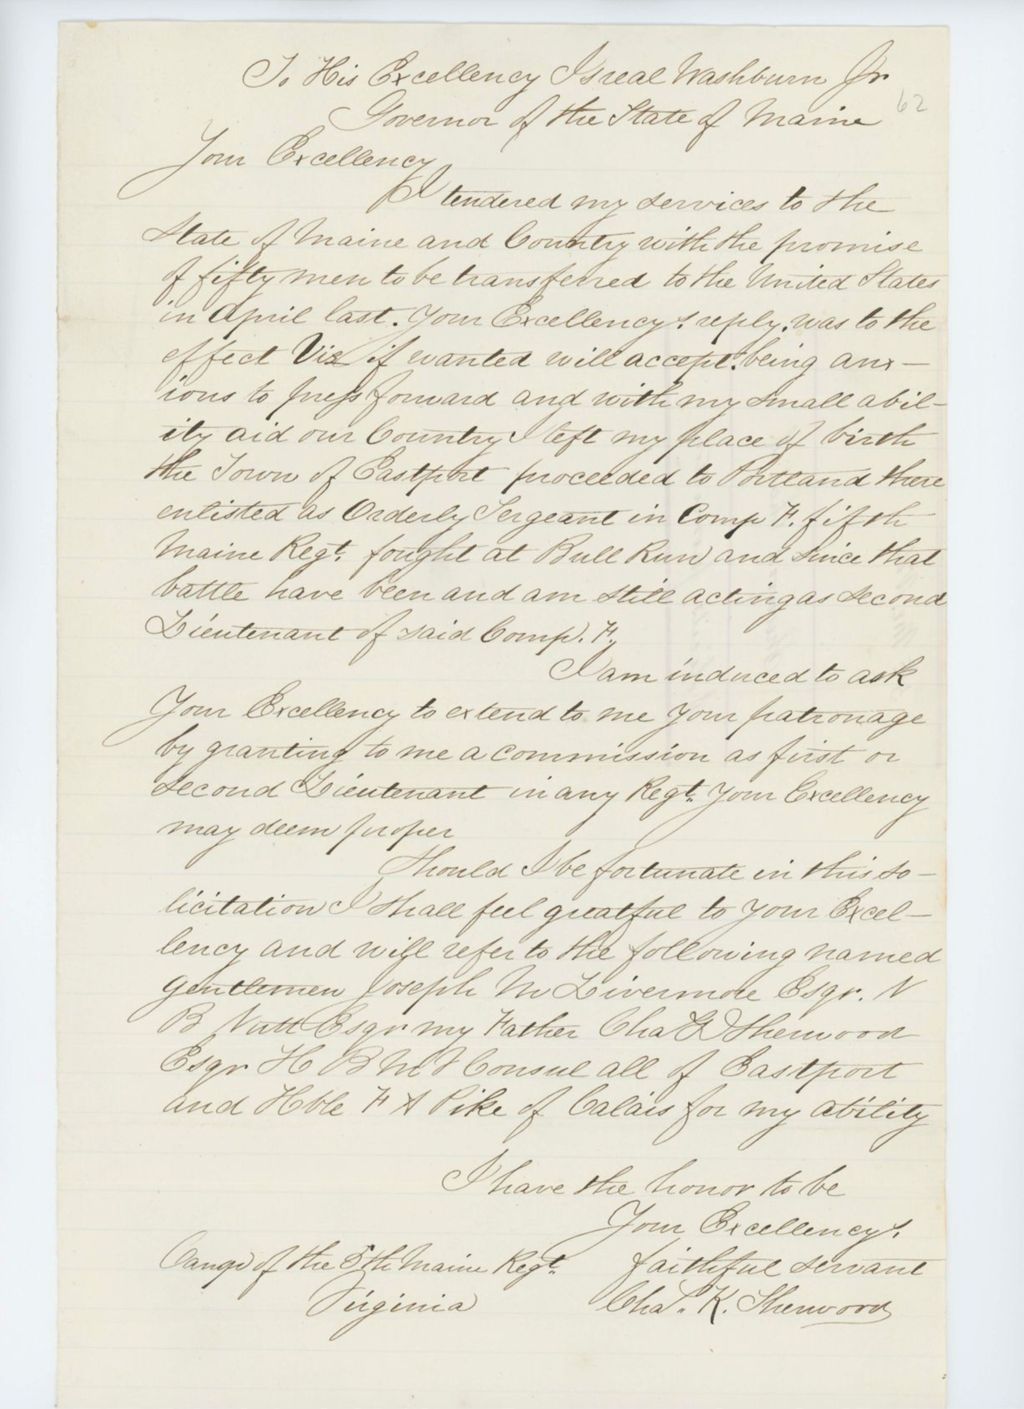 To His Excellency Isreal Washburn Jr
62
Governor of the State of Maine
Your Excellency
I tendered my services to the
State of Maine and Country with the promise
of fifty men to be transferred to the United States
in April last. Your Excellency's reply, was to the
effect Viz if wanted will accept. being anx-
ious to press forward and with my small abil-
ity aid our Country I left my place of birth
the Town of Eastport proceeded to Portland there
enlisted as Orderly Sergeant in Comp F. fifth
Maine Regt. fought at Bull Run and since that
battle have been and am still acting as Second
Lieutenant of said Comp. F,
I am induced to ask
Your Excellency to extend to me your patronage
by granting to me a commission as first or
Second Lieutenant in any Regt. Your Excellency
may deem proper
Should I be fortunate in this so-
licitation I shall feel greatful to your Excel-
lency and will refer to the following named
gentlemen Joseph M Livermore Esqr. N
B Nutt Esqr my Father Chas Sherwood
Esqr H B M Consul all of Eastport
and Hble F A Pike of Calais for my ability
I have the honor to be
Your Excellency's
Camp of the 5th Maine Regt. faithful servant
Virginia Chas. K. Sherwood